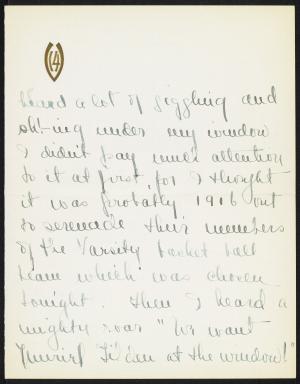 heard a lot of giggling and
sh!-ing under my window
I didn't pay much attention
to it at first, for I thought
it was probably 1916 out
to serenade their members
of the Varsity basket ball
team which was chosen
tonight. Then I heard a
mighty roar "We want
Muriel at the window!"